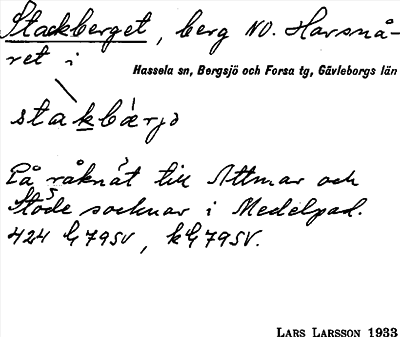 Stackberget, berg NO. Harsnå-
ret i
Hassela sn, Bergsjö och Forsa tg, Gävleborgs län
stakbærjə
På råknåt till Attmar och
Stöde socknar i Medelpad.
424 G79SV, kG79SV.
LARS LARSSON 1933